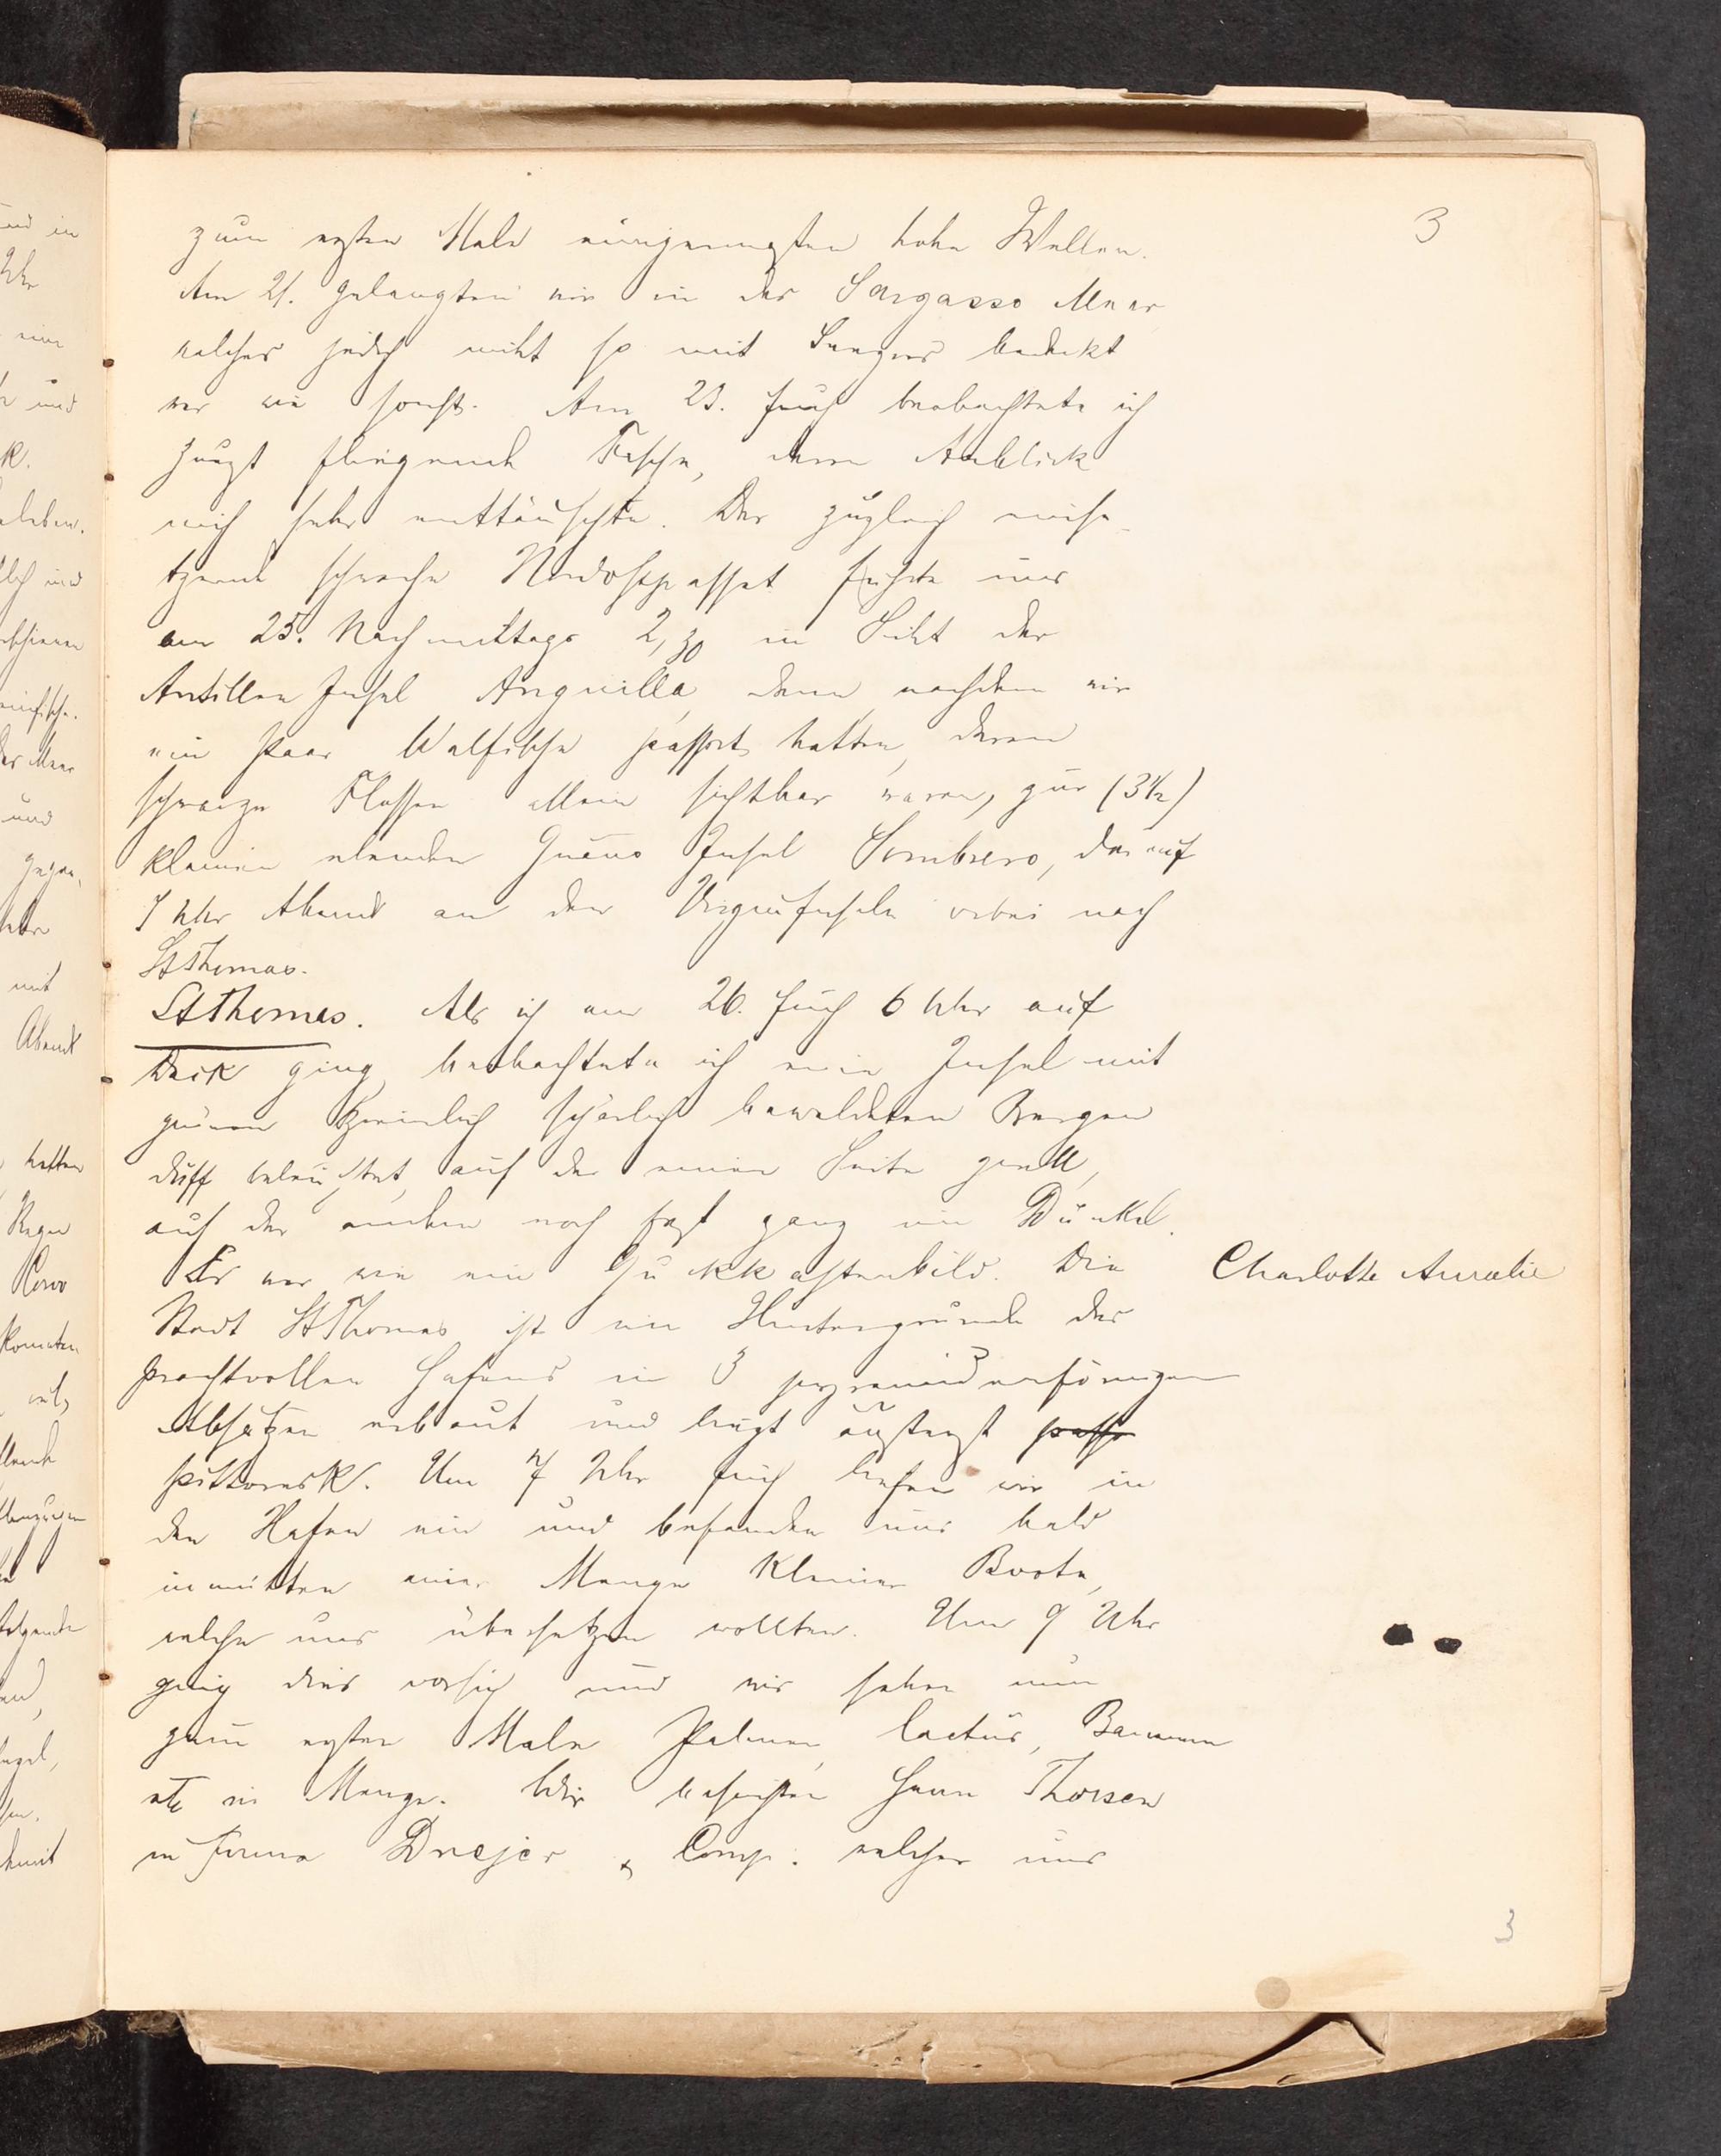 3
zum ersten Male einigermaßen hohe Wellen.
Am 21. gelangten wir in das Sargasso Meer
welches jedoch nicht so mit Tangen bedeckt
war wie sonst. Am 23. früh beobachtete ich
zuerst fliegende Fische, deren Anblick
mich sehr enttäuschte. Der zugleich
schwache Nordostpassat führte uns
am 25. Nachmittags 2,30 in Sicht der
Antillen Insel Anguilla, dann nachdem wir
ein Paar Walfische passirt hatten, deren
schwarze Flossen allein sichtbar waren, zur (3½)
kleinen elenden Guano Insel Sombrero, darauf
7 Uhr Abend an den Virgininseln vorbei nach
St Thomas.
St Thomas. Als ich am 26. früh 6 Uhr auf
Deck ging, beobachtete ich eine Insel mit
grünen ziemlich spärlich bewaldeten Bergen
duff beleuchtet, auf der einen Seite grell,
auf der anderen noch fast ganz im Dunkel.
Es war wie ein Guckkastenbild. Die
Charlotte Amalie
Stadt St Thomas ist im Hintergrunde des
prachtvollen Hafens in 3 pyramidenförmigen
Absätzen erbaut und liegt äußerst
pittoresk. Um 7 Uhr früh liefen wir in
den Hafen ein und befanden uns bald
inmitten einer Menge kleiner Boote,
welche uns übersetzen wollten. Um 9 Uhr
ging dies vorsich und wir sahen nun
zum ersten Male Palmen, Cactus, Bananen
etc in Menge. Wir besuchten Herrn Thorsen
in Firma Drejer & Comp. welcher uns
3